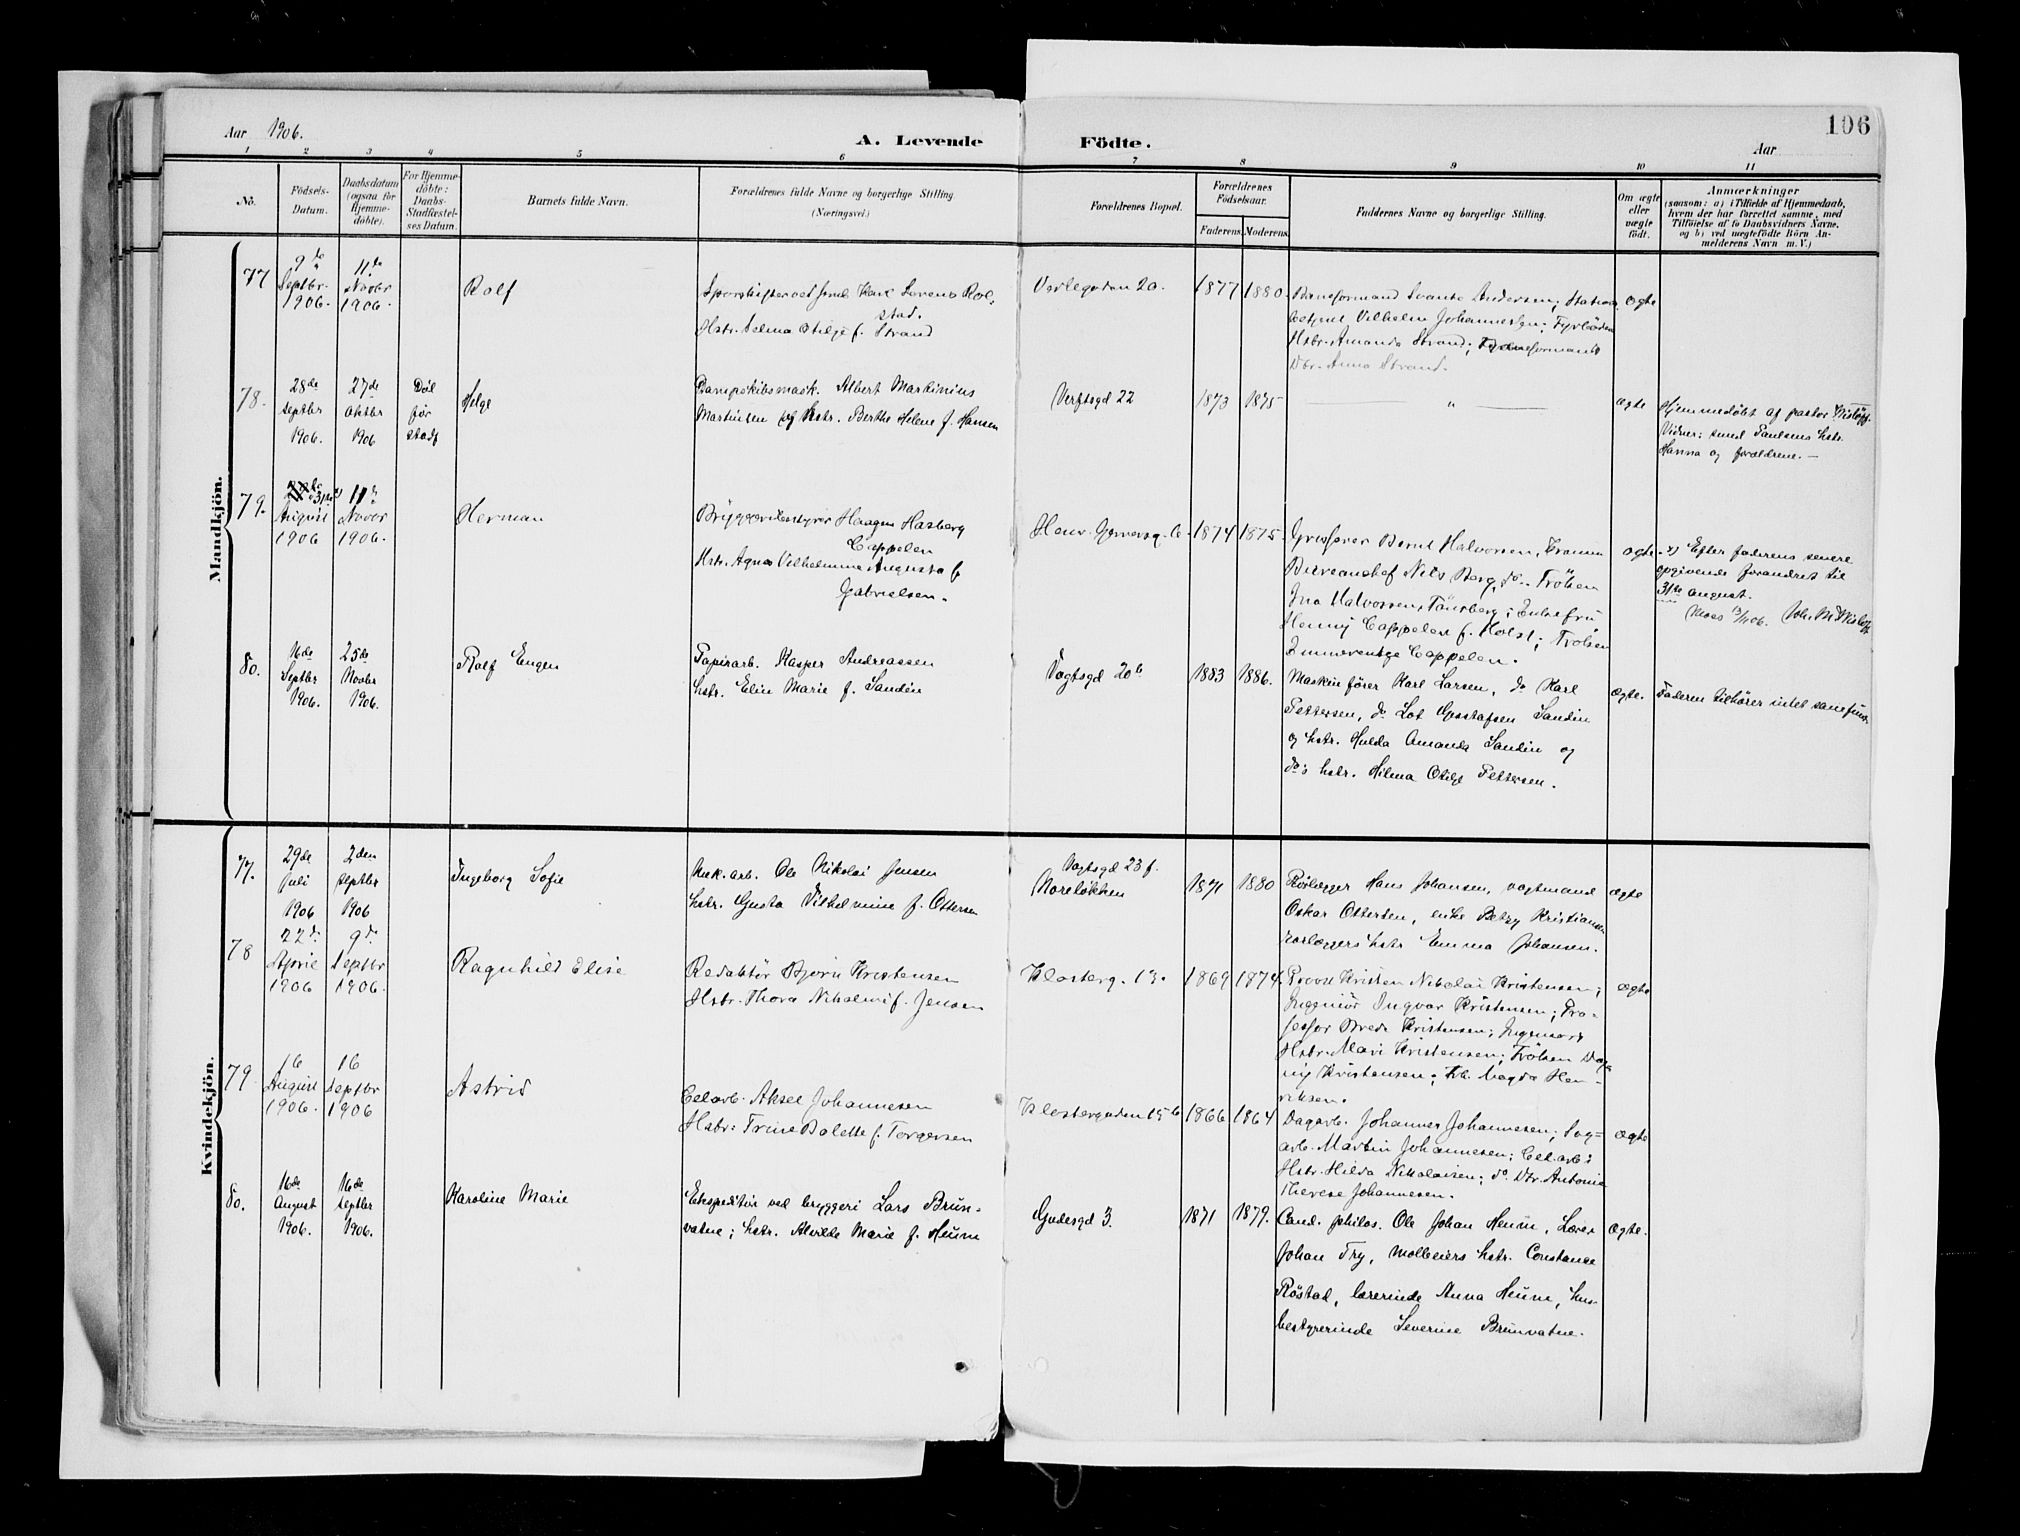 Aar 1906.
A. Levende Födte.
106
Aar
1 2 3 4 5 6 7 8 9 10 11
No.
Födsels-
Datum.
Daabsdatum
(ogsaa for
Hjemme-
döbte).
For Hjemme-
döbte:
Daabs-
Stadfæstel-
ses Datum.
Barnets fulde Navn.
Forældrenes fulde Navne og borgerlige Stilling
(Næringsvei.)
Forældrenes Bopæl.
Forældrenes
Födselsaar.
Faderens. Moderens.
Faddernes Navne og borgerlige Stilling.
Om ægte
eller
uægte
födt.
Anmærkninger
(saasom: a) i Tilfælde af Hjemmedaab,
hvem der har forrettet samme, med
Tilföielse af to Daabsvidners Navne,
og b) ved uægtefödte Börn An-
melderens Navn m. V.)
Mandkjön.
77
9de
Septbr.
1906.
11te
Novbr
1906.
Rolf
Karl Lorens Rol-
stad.
Hstr. Selma Otilge f. Strand
Verlegaden 20.
1877
1880.
Baneformand Svante Andersen; Stations
betjent Vilhelm Johannesen; Fyrböder
Hstr. Amanda Strand; Baneformands
Dtr. Anna Strand.
ægte
78.
28de
septbr
1906.
27de
oktbr
1906
Döl
för
stadf
Helge
Dampskibsmask. Albert Martinius
Martinsen og hstr. Berthe Helene f. Hansen
Verftsgd 22
1873
1875
"
ægte
Hjemmedöbt af pastor Wislöff.
Vidner: smed Paulsens hstr.
Hanna og forældrene. —
79.
31te x)
August
1906
11te
Novbr
1906.
Herman
Bryggeribestyrer Haagen Hasberg
Cappelen
Hstr. Agnes Vilhelmine Augusta f.
Gabrielsen.
Henr. Gernersg. 6.
1874
1875.
Grosserer Bernt Halvorsen,
Bureauchef Nils Berg, do. Fröken
Ina Halvorsen, Tönsberg; Enkefru
Henny Cappelen f. Holst; Fröken
Cappelen.
ægte
x) Efter faderens senere
opgivende forandret til
31te august.
Moss 13/11 06. Joh. M. Wislöff.
80.
16de
Septbr
1906.
25de
Novbr
1906.
Rolf Eugen
Papirarb. Kasper Andreassen
hstr. Elin Marie f. Sandin
Vogtsgd 20b
1883
1886.
Maskinförer Karl Larsen, do Karl
Pettersen, do Lot Gustafsen Sandin
og hstr. Hulda Amanda Sandin og
do's hstr. Hilma Otilge Pettersen.
ægte.
Faderen tilhörer intet
Kvindekjön.
77.
29de
juli
1906
2den
septbr
1906
Ingeborg Sofie
Mek. arb. Ole Nikolai Jensen
hstr. Gusta Vilhelmine f. Ottersen
Vogtsgd 23 f.
Noreløkken
1871
1880
Rörlægger Hans Johansen, vogtmand
Oskar Ottersen, enke Betzy Kristiansen
rörlæggers hstr Emma Johansen.
ægte
78
22d.
April
1906
9d.
Septbr
1906.
Ragnhild Elise
Redaktör Björn Kristensen
Hstr. Thora Nikoline f. Jensen
Klosterg. 13.
1869
1874.
Provst Kristen Nikolai Kristensen;
Ingeniör Ingvar Kristensen; Pro-
fessor Brede Kristensen; Ingeniörs
Hstr. Mari Kristensen; Fröken Dag-
ny Kristensen; Frk. Magda Hen-
riksen.
ægte
79
16
August
1906.
16
Septbr
1906
Astrid
Cel.arb. Aksel Johannesen
Hstr: Trine Bolette f. Torgersen
Klostergaden 15 b
1866
1864
Dagarb. Johannes Johannesen; Sag-
arb. Martin Johannesen; Cel.arb.s
Hstr. Hilda Nikolaisen; do. Dtr. Antonie
Therese Johannesen.
ægte
80.
16de
August
1906.
16de
septbr
1906.
Karoline Marie
Ekspeditör ved bryggeri Lars Brun-
vatne; hstr. Alvilde Marie f. Heum
Gudesgd 3.
1871
1879.
Cand. philos. Ole Johan Heum, Lærer
Johan Try, Molbeiers hstr. Constance
Röstad, lærerinde Anna Heum, hus-
bestyrerinde Severine Brunvatne.
ægte.